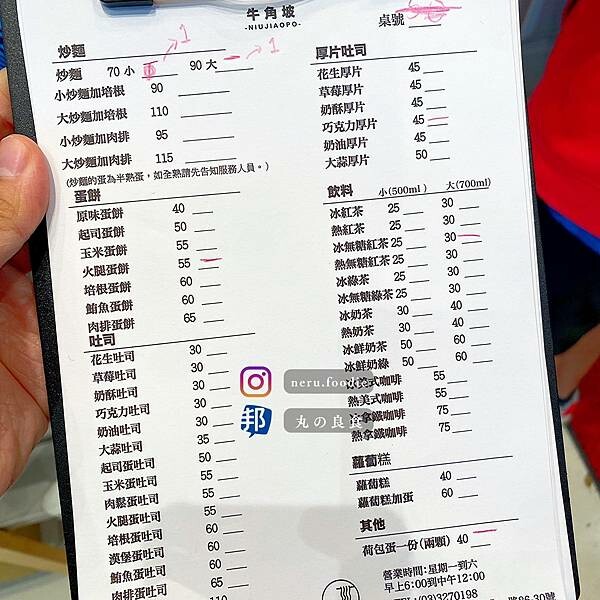 牛角坡
-NIUJIAOPO-
桌號
炒麵
炒麵 70 小 1 90 大 1
小炒麵加培根 90
大炒麵加培根 110
小炒麵加肉排 95
大炒麵加肉排 115
(炒麵的蛋為半熟蛋，如全熟請先告知服務人員。)
蛋餅
原味蛋餅 40
起司蛋餅 50
玉米蛋餅 55
火腿蛋餅 55
培根蛋餅 60
鮪魚蛋餅 60
肉排蛋餅 65
吐司
花生吐司 30
草莓吐司 30
奶酥吐司 30
巧克力吐司 30
奶油吐司 30
大蒜吐司 35
起司蛋吐司 50
玉米蛋吐司 55
肉鬆蛋吐司 55
火腿蛋吐司 55
培根蛋吐司 60
漢堡蛋吐司 60
鮪魚蛋吐司 60
肉排蛋吐司
110
厚片吐司
花生厚片 45
草莓厚片 45
奶酥厚片 45
巧克力厚片 45
奶油厚片 45
大蒜厚片 50
飲料 小(500ml) 大(700ml)
冰紅茶 25 30
熱紅茶 25 30
冰無糖紅茶 25 30
熱無糖紅茶 25 30
冰綠茶 25 30
冰無糖綠茶 25 30
冰奶茶 30 40
熱奶茶 30 40
冰鮮奶茶 50 60
冰鮮奶綠 50 60
式咖啡 55
熱美式咖啡 55
拿鐵咖啡 75
熱拿鐵咖啡 75
蘿蔔糕
蘿蔔糕 40
蘿蔔糕加蛋 60
其他
荷包蛋一份(兩顆) 40
營業時間:星期一到六
早上6:00到中午12:00
(03)3270198
路86-30號
neru.food
邦
丸の良食